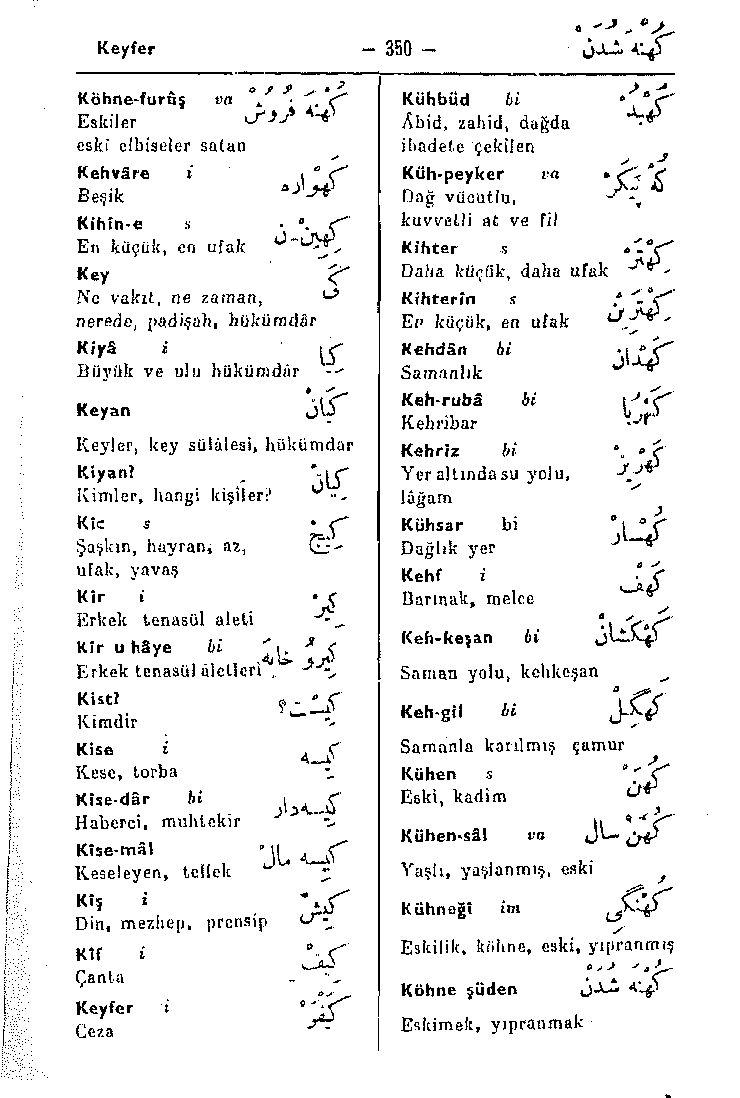 Keyfer — 350 — كُهْنَه شُدَنْ
Köhne-furûş va كُهْنَه فُرُوشْ
Eskiler
eski elbiseler satan
Kehvâre i كَهْوَارَه
Beşik
Kihîn-e s كِهِينْ-نْ
En küçük, en ufak
Key كَیْ
Ne vakıt, ne zaman,
nerede, padişah, hükümdâr
Kiyâ i كِيَا
Büyük ve ulu hükümdâr
Keyan كَيَانْ
Keyler, key sülâlesi, hükümdar
Kiyan? كِيَانْ
Kimler, hangi kişiler?
Kîc s كِيجْ
Şaşkın, hayran, az,
ufak, yavaş
Kîr i كِيرْ
Erkek tenasül aleti
Kîr u hâye bi كِيرُو خَايَه
Erkek tenasül âletleri
Kîst? كِيسْت؟
Kimdir
Kîse i كِيسَه
Kese, torba
Kîse-dâr bi كِيسَه‌دار
Haberci, muhtekir
Kîse-mâl كِيسَه مالْ
Keseleyen, tellek
Kîş i كِيشْ
Din, mezhep, prensip
Kîf i كِيفْ
Çanta
Keyfer i كَيْفَرْ
Ceza
Kühbüd bi كُهْبُدْ
Âbid, zahid, dağda
ibadete çekilen
Küh-peyker va كُهْ پَيْكَرْ
Dağ vücutlu,
kuvvetli at ve fil
Kihter s كِهْتَرْ
Daha küçük, daha ufak
Kihterîn s كِهْتَرِينْ
En küçük, en ufak
Kehdân bi كَهْدَانْ
Samanlık
Keh-rubâ bi كَهْرُبَا
Kehribar
Kehrîz bi كَهْرِيزْ
Yer altında su yolu,
lâğam
Kühsar bi كُهْسَارْ
Dağlık yer
Kehf i كَهْفْ
Barınak, melce
Keh-keşan bi كَهْكَشَانْ
Saman yolu, kehkeşan
Keh-gil bi كَهْگِلْ
Samanla karılmış çamur
Kühen s كُهَنْ
Eski, kadim
Kühen-sâl va كُهَنْ سال
Yaşlı, yaşlanmış, eski
Kühneğî im كُهْنَگِی
Eskilik, köhne, eski, yıpranmış
Köhne şüden كُهْنَه شُدَنْ
Eskimek, yıpranmak